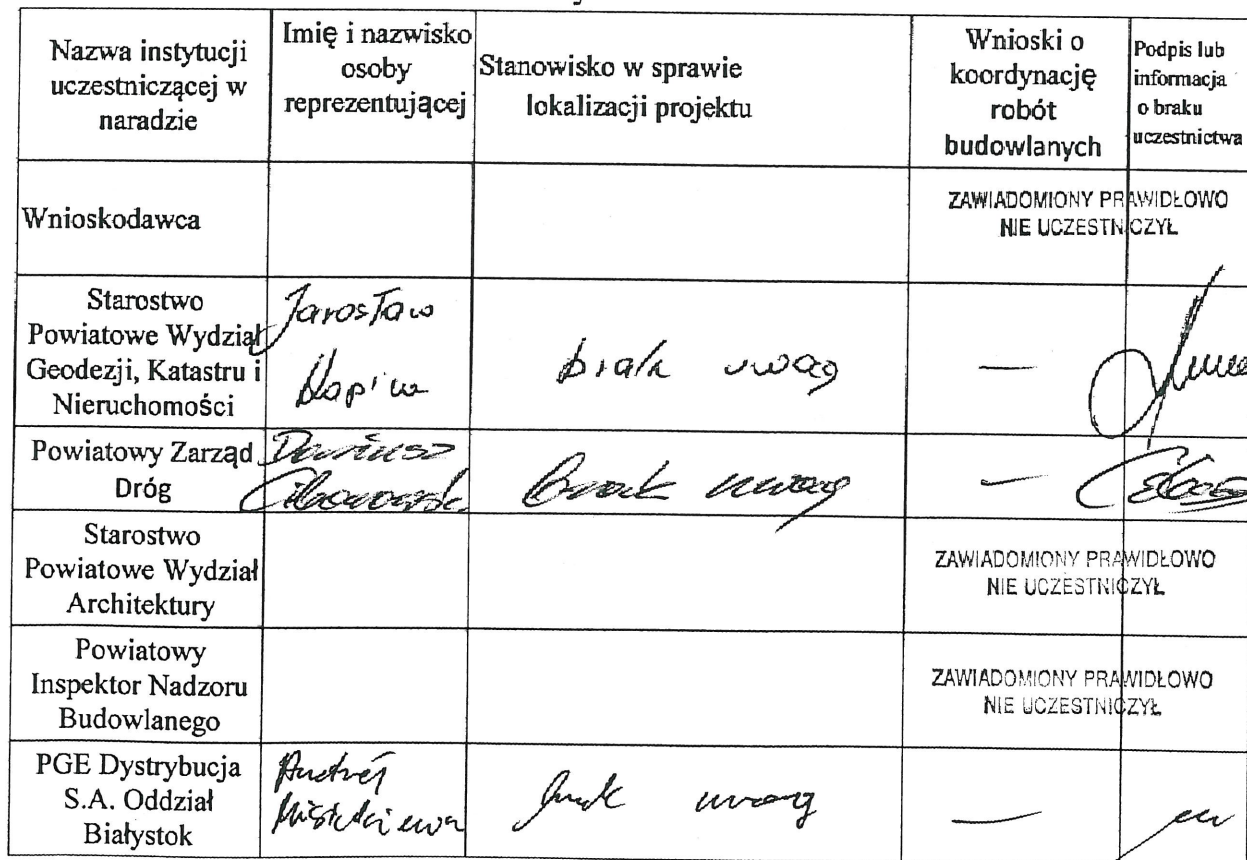 Nazwa instytucji
uczestniczącej w
naradzie
Imię i nazwisko
osoby
reprezentującej
Stanowisko w sprawie
lokalizacji projektu
Wnioski o
koordynację
robót
budowlanych
Podpis lub
informacja
o braku
uczestnictwa
Wnioskodawca
ZAWIADOMIONY PRAWIDŁOWO
NIE UCZESTNICZYŁ
Starostwo
Powiatowe Wydział
Geodezji, Katastru i
Nieruchomości
Jarosław
brak uwag
—
Powiatowy Zarząd
Dróg
Dariusz
Brak uwag
—
Starostwo
Powiatowe Wydział
Architektury
ZAWIADOMIONY PRAWIDŁOWO
NIE UCZESTNICZYŁ
Powiatowy
Inspektor Nadzoru
Budowlanego
ZAWIADOMIONY PRAWIDŁOWO
NIE UCZESTNICZYŁ
PGE Dystrybucja
S.A. Oddział
Białystok
Andrzej
brak uwag
—